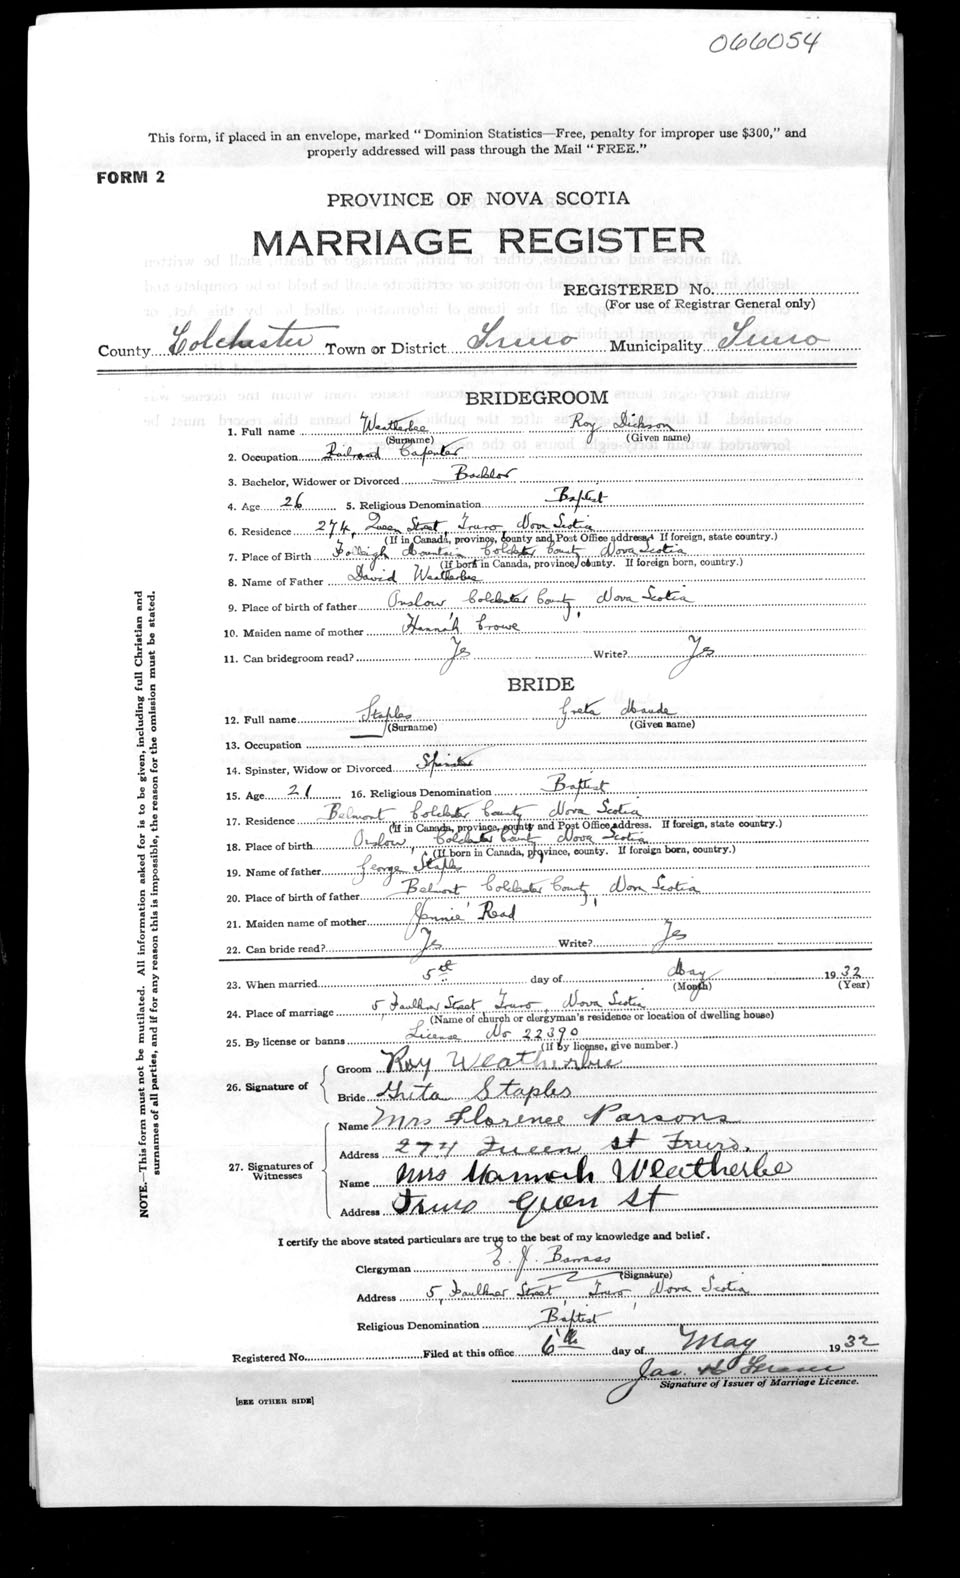 066054
This form, if placed in an envelope, marked "Dominion Statistics—Free, penalty for improper use $300," and
properly addressed will pass through the Mail "FREE."
FORM 2
PROVINCE OF NOVA SCOTIA
MARRIAGE REGISTER
REGISTERED No.
(For use of Registrar General only)
County Colchester Town or District Truro Municipality Truro
BRIDEGROOM
1. Full name Weatherbee Roy Dickson
(Surname) (Given name)
2. Occupation Railroad Carpenter
3. Bachelor, Widower or Divorced Bachelor
4. Age 26 5. Religious Denomination Baptist
6. Residence 274, Queen Street, Truro, Nova Scotia
(If in Canada, province, county and Post Office address. If foreign, state country.)
7. Place of Birth Mountain Colchester County Nova Scotia
(If born in Canada, province, county. If foreign born, country.)
8. Name of Father David Weatherbee
9. Place of birth of father Onslow, Colchester County, Nova Scotia
10. Maiden name of mother Hannah Crowe
11. Can bridegroom read? Yes Write? Yes
BRIDE
12. Full name Staples Greta Maude
(Surname) (Given name)
13. Occupation
14. Spinster, Widow or Divorced Spinster
15. Age 21 16. Religious Denomination Baptist
17. Residence Belmont Colchester County Nova Scotia
(If in Canada, province, county and Post Office address. If foreign, state country.)
18. Place of birth Onslow, Colchester County Nova Scotia
(If born in Canada, province, county. If foreign born, country.)
19. Name of father George Staples
20. Place of birth of father Belmont Colchester County, Nova Scotia
21. Maiden name of mother Jennie Read
22. Can bride read? Yes Write? Yes
23. When married 5th day of May 1932
(Month) (Year)
24. Place of marriage 5, Faulkner Street Truro, Nova Scotia
(Name of church or clergyman's residence or location of dwelling house)
25. By license or banns License No 22390
(If by license, give number.)
26. Signature of
Groom Roy Weatherbie
Bride Greta Staples
27. Signatures of Witnesses
Name Mrs Florence Parsons
Address 274 Queen St Truro.
Name Mrs Hannah Weatherbe
Address Truro Quen St
I certify the above stated particulars are true to the best of my knowledge and belief.
Clergyman E. J. Barrass
(Signature)
Address 5, Faulkner Street, Truro, Nova Scotia
Religious Denomination Baptist
Registered No. Filed at this office 6th day of May 1932
Jas. H Fraser
Signature of Issuer of Marriage Licence.
[SEE OTHER SIDE]
NOTE.—This form must not be mutilated. All information asked for is to be given, including full Christian and
surnames of all parties, and if for any reason this is impossible, the reason for the omission must be stated.